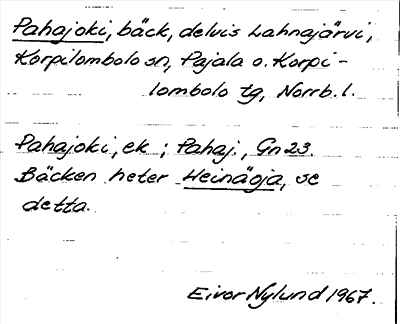 Pahajoki, bäck, delvis Lahnajärvi,
Korpilombolo sn, Pajala o. Korpi-
lombolo tg, Norrb. l.
Pahajoki, ek ; Pahaj., Gn 23.
Bäcken heter Heinäoja, se
detta.
Eivor Nylund 1967.